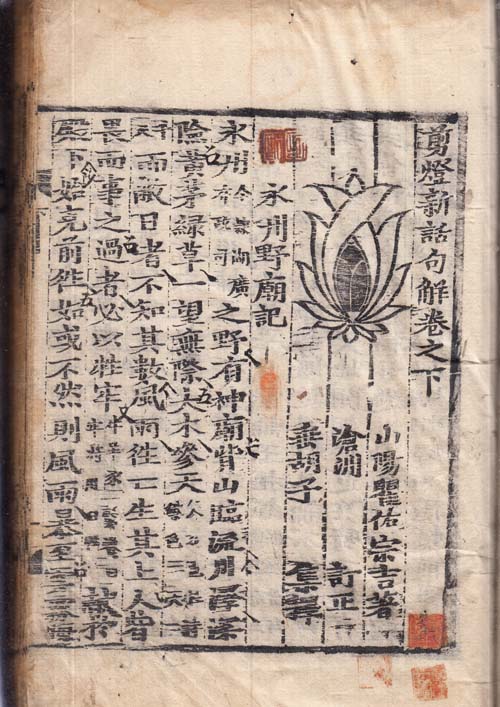 剪燈新話句解卷之下
山陽瞿佑宗吉著
滄洲 訂正
垂胡子 集釋
永州野廟記
永州今隸湖廣布政司之野有神廟背山臨流川澤深
險黃茅綠草一望無際大木參天
而蔽日者不知其數風雨往往生其上人皆
畏而事之過者必以牲牢獻於
殿下始克前往如或不然則風雨暴至雲霧晦